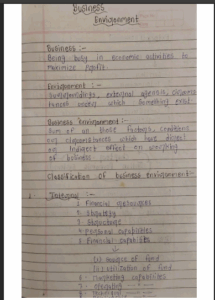 Business
Environment
Business :-
Being busy in economic activities to
maximize profit.
Environment :-
Surroundings, external agencies, circums
tances under which something exist
Business Environment :-
Sum of all those factors, conditions
or circumstances which have direct
or indirect effect on working
of business
Classification of business environment
Internal :-
1. Financial
2. Strategy
3. Structures
4. Personal capabilities
5. Financial capabilities
(a) source of fund
(b) utilization of fund
6. Marketing capabilities
7. Operating
8.